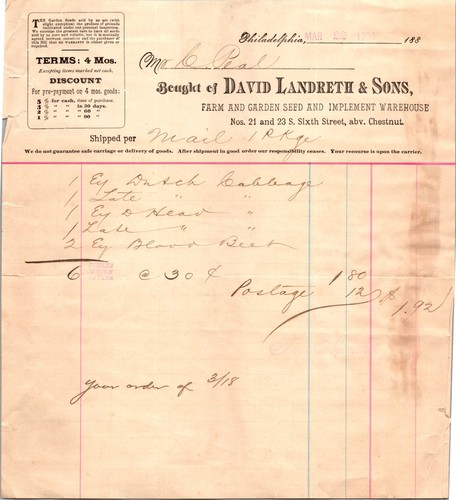 THE Garden Seeds sold by us are (with slight exception) the produce of grounds cultivated under our personal inspection. We exercise the greatest care to have all seeds sold by us pure and reliable, but it is mutually agreed between ourselves and the purchaser of this Bill that no WARRANTY is either given or required.
TERMS: 4 Mos.
Excepting items marked net cash.
DISCOUNT
For pre-payment on 4 mos. goods:
5 % for cash, time of purchase.
3 % " " in 30 days.
2 % " " " 60 "
1 % " " " 90 "
Philadelphia, MAR 22 188
Mr C. Peal
Bought of DAVID LANDRETH & SONS,
FARM AND GARDEN SEED AND IMPLEMENT WAREHOUSE
Nos. 21 and 23 S. Sixth Street, abv. Chestnut.
Shipped per Mail 1 Pkge
We do not guarantee safe carriage or delivery of goods. After shipment in good order our responsibility ceases. Your recourse is upon the carrier.
1 Ey Dutch Cabbage
1 Late " "
1 Ey D Head "
1 Late " "
2 Ey Blood Beet
6 @ 30 ¢ 1 80
Postage 12 $ 1.92
Your order of 3/18